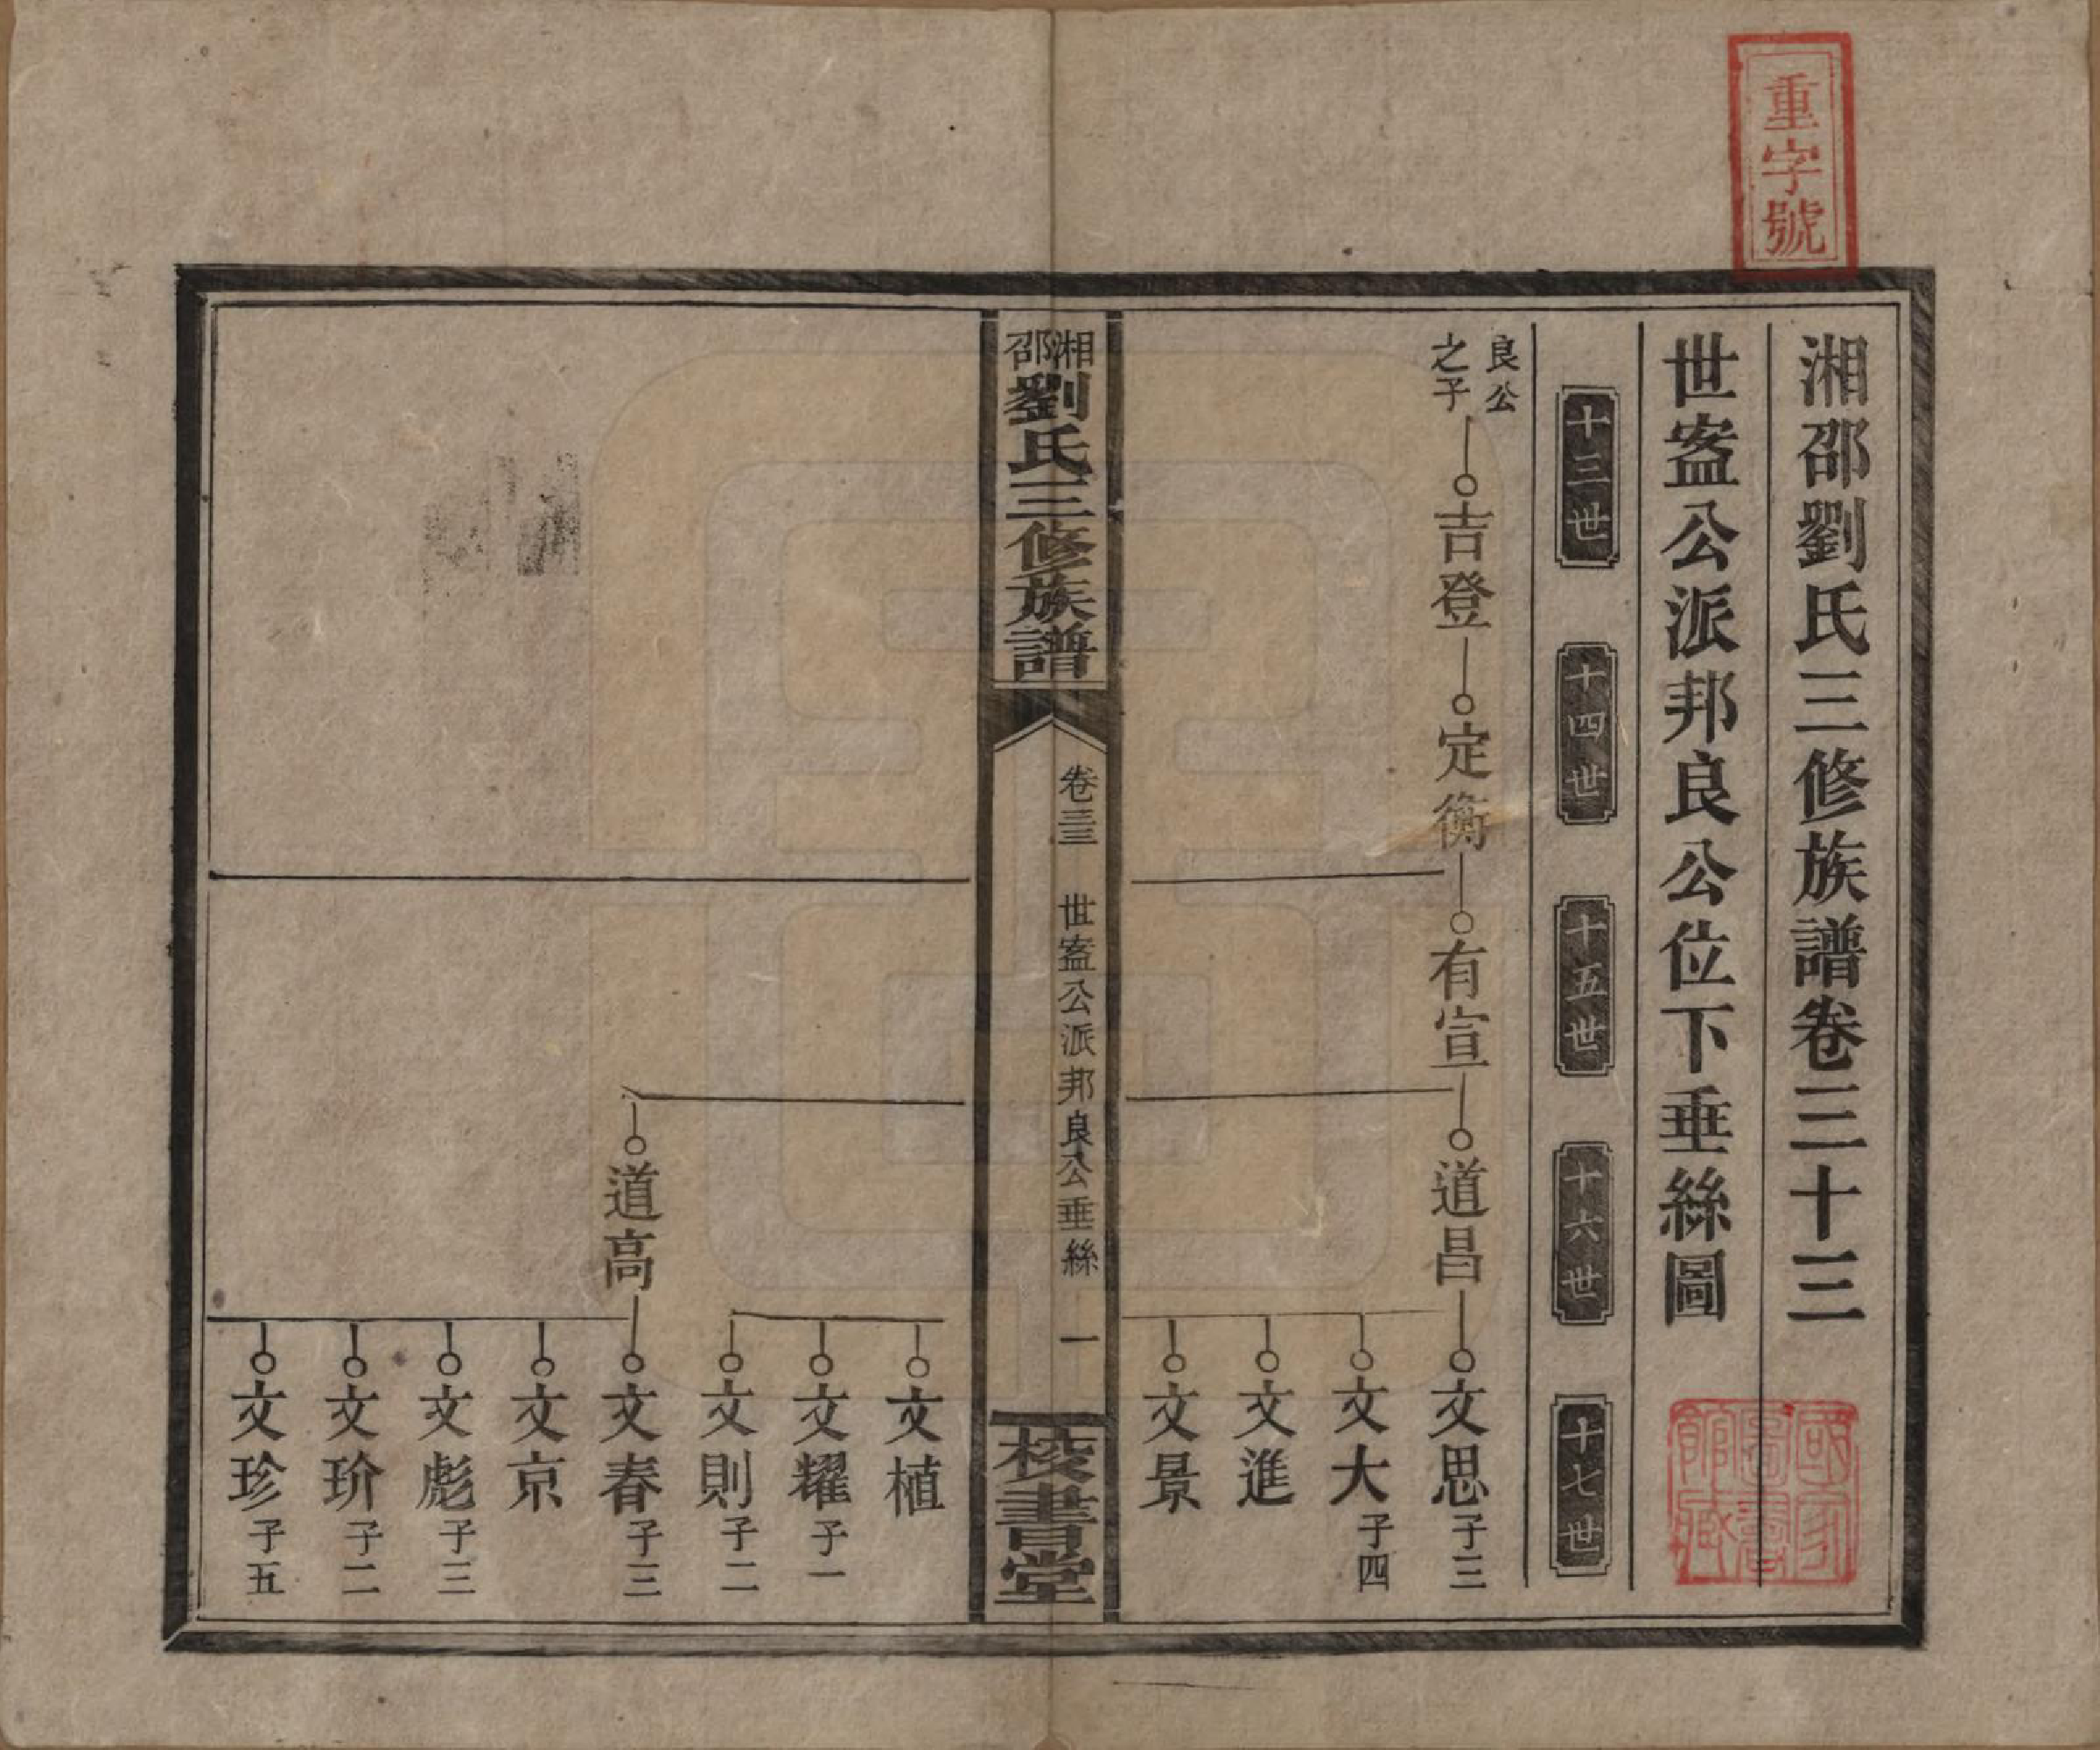 重字號
湘邵劉氏三修族譜卷三十三
世盇公派邦良公位下垂絲圖
國家圖書館藏
十三世
十四世
十五世
十六世
十七世
良公之子
吉登
定衡
有宣
道昌
文思 子三
文大 子四
文進
文景
湘邵劉氏三修族譜
卷三三
世盇公派邦良公垂絲
一
校書堂
文植
文耀 子一
文則 子二
道高
文春 子三
文京
文彪 子三
文玠 子二
文珍 子五